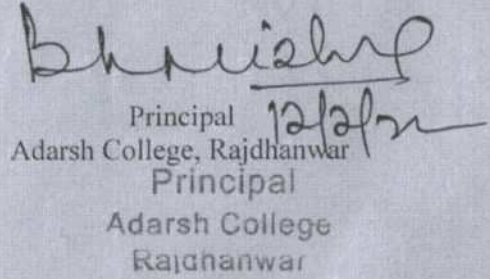 Principal 12/2/22
Adarsh College, Rajdhanwar
Principal
Adarsh College
Rajdhanwar